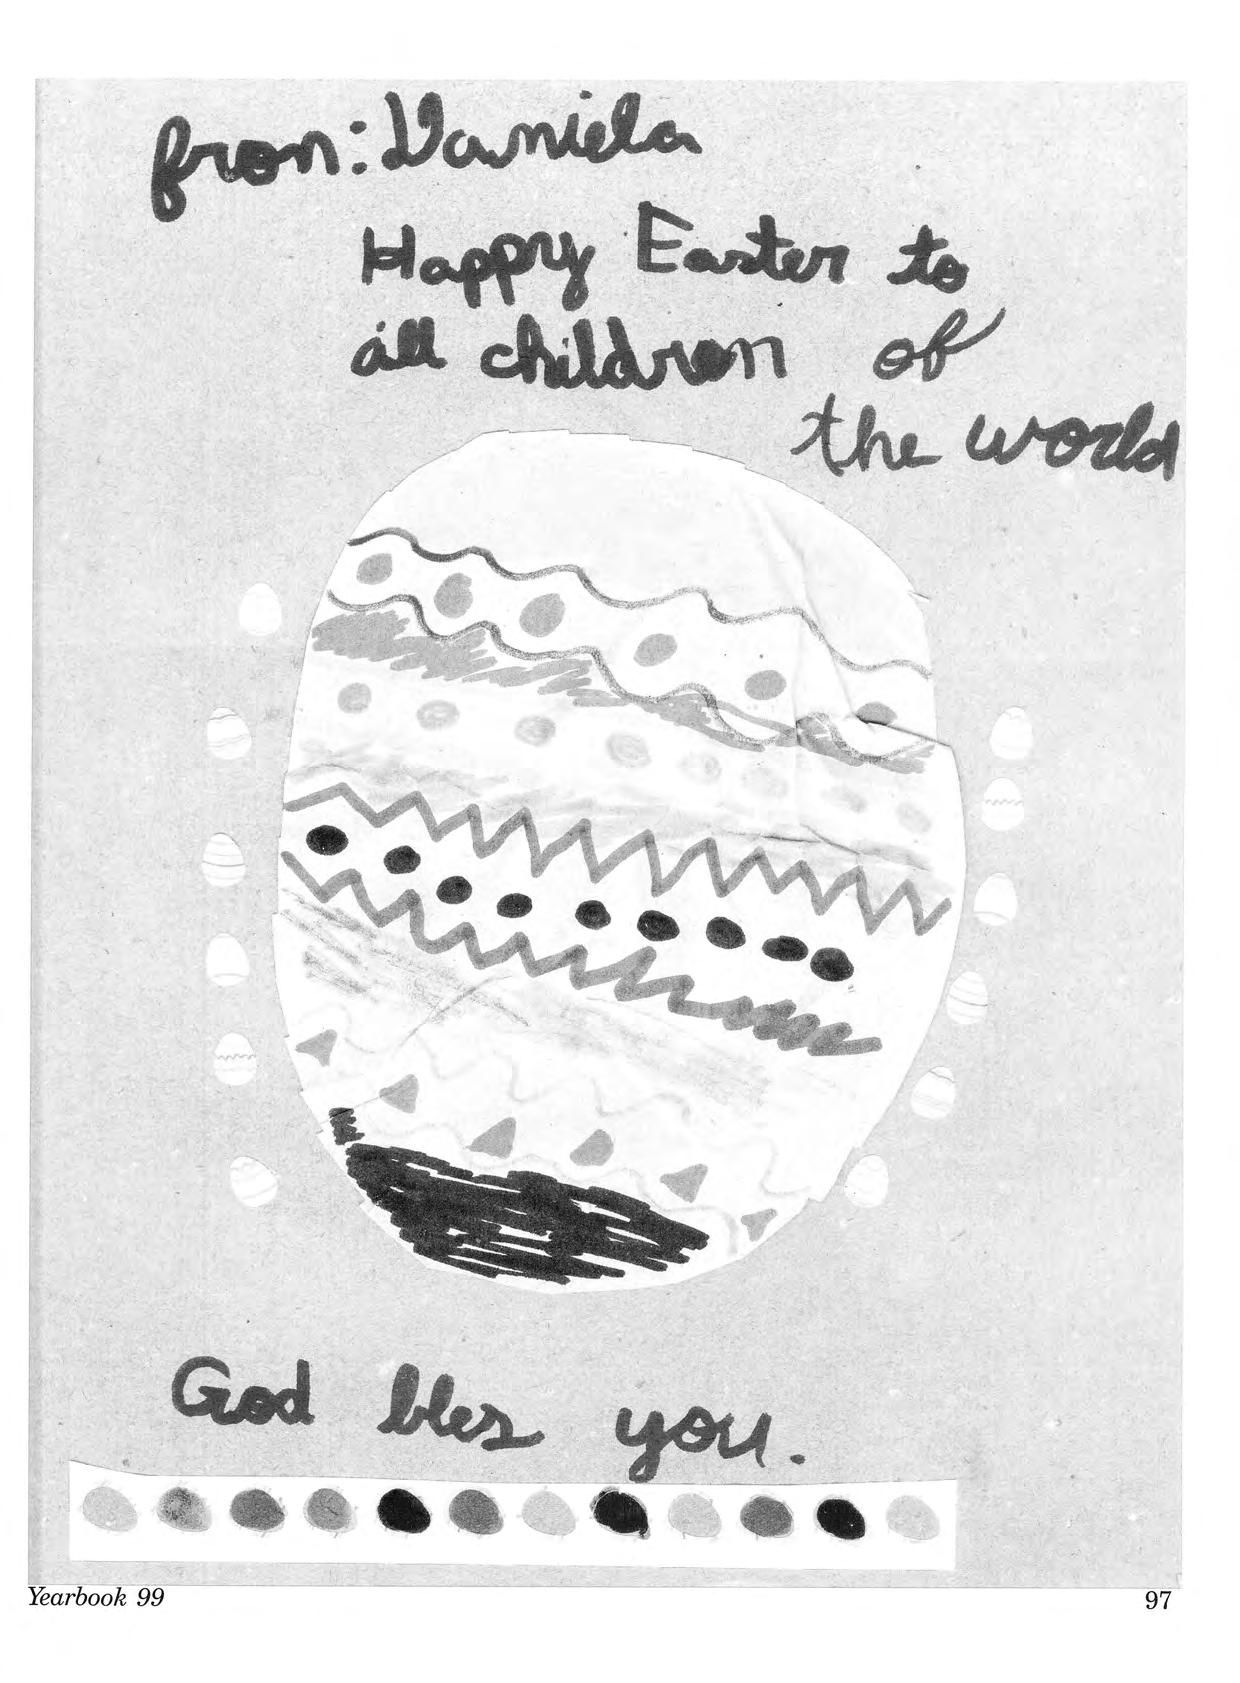 fron: Daniela
Happy Easter to
all children of
the world
God bles you.
Yearbook 99
97